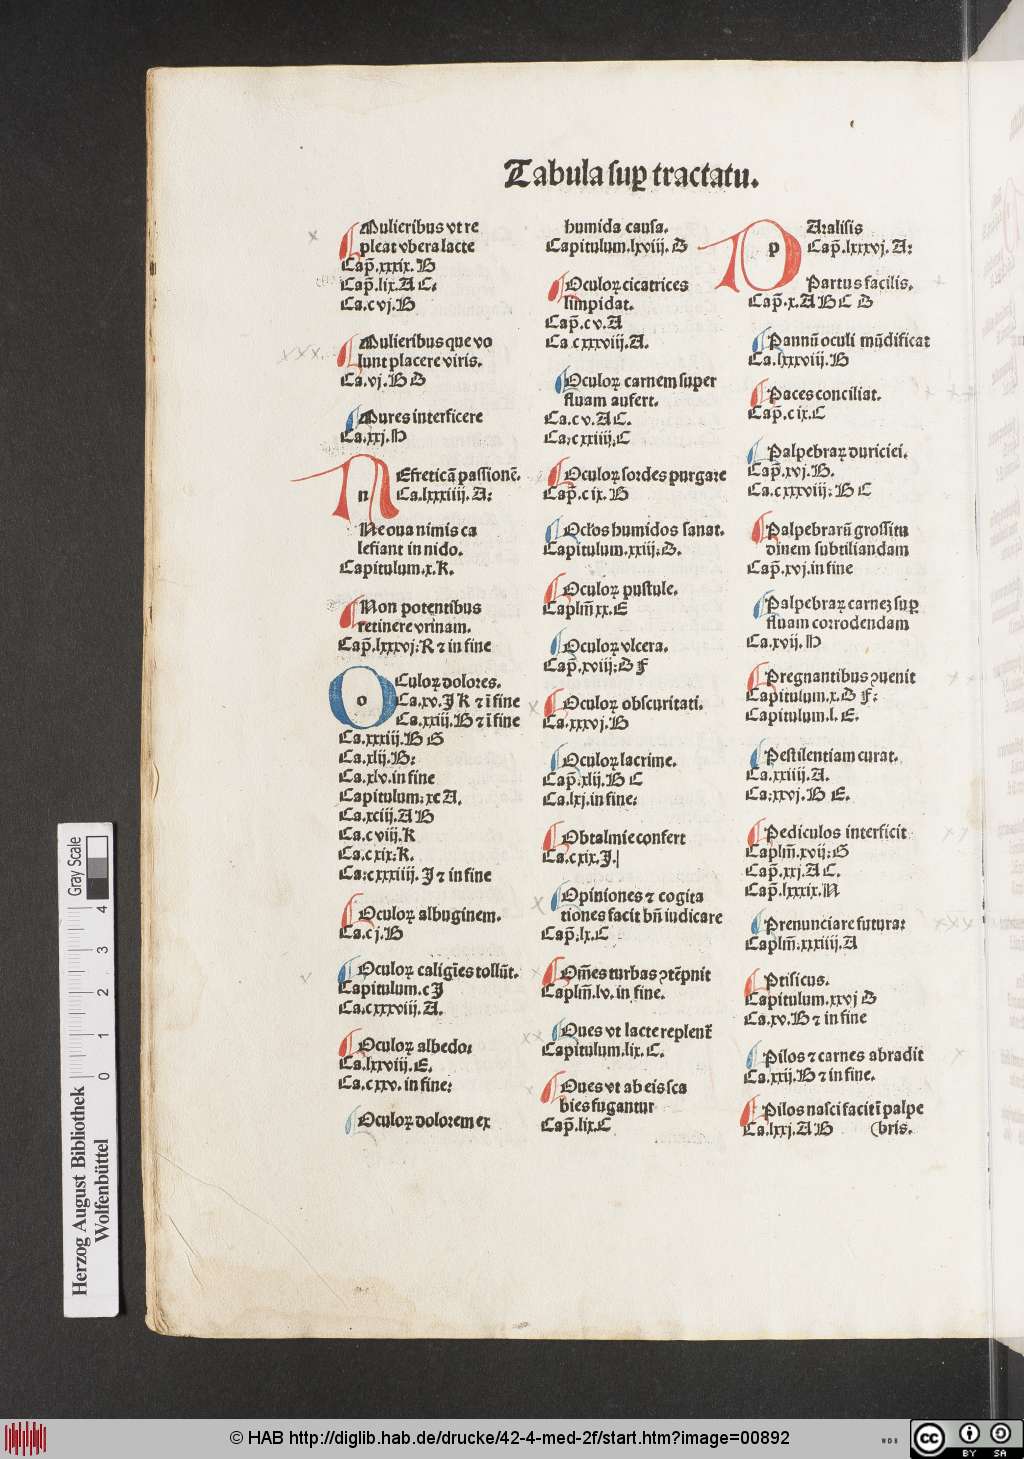 Tabula sup tractatu.
Mulieribus vt re
pleat vbera lacte
Cap̄.xxxix.H
Cap̄.lix.A C.
Ca.cvj.H
Mulieribus que vo
lunt placere viris.
Ca.vj.H D
Mures interficere
Ca.xxj.M
NEfreticā passionē.
n Ca.lxxxiiij.A:
Ne oua nimis ca
lefiant in nido.
Capitulum.x.K.
Non potentibus
retinere vrinam.
Cap̄.lxxxvj:R ⁊ in fine
OCuloꝝ dolores.
o Ca.xv.J K ⁊ ī fine
Ca.xxiij.H ⁊ ī fine
Ca.xxxiij.H G
Ca.xlij.H:
Ca.xlv.in fine
Capitulum:xc A.
Ca.xciij.A H
Ca.cviij.K
Ca.cxix:K.
Ca:cxxxiiij.J ⁊ in fine
Oculoꝝ albuginem.
Ca.cj.H
Oculoꝝ caligīes tollūt.
Capitulum.cJ
Ca.cxxxviij.A.
Oculoꝝ albedo:
Ca.lxxviij.E.
Ca.cxxv.in fine:
Oculoꝝ dolorem ex
humida causa.
Capitulum.lxviij.D
Oculoꝝ cicatrices
limpidat.
Cap̄.cv.A
Ca.cxxxviij.A.
Oculoꝝ carnem super
fluam aufert.
Ca.cv.A C.
Ca:cxxiiij:C
Oculoꝝ sordes purgare
Cap̄.cix.H
Ocl'os humidos sanat.
Capitulum.xxiij:D.
Oculoꝝ pustule.
Caplm̄.xx.E
Oculoꝝ vlcera.
Cap̄.xviij:D F
Oculoꝝ obscuritati.
Ca.xxxvj.H
Oculoꝝ lacrime.
Cap̄.xlij.H C
Ca.lxj.in fine:
Obtalmie confert
Ca.cxix.J.
Opiniones ⁊ cogita
tiones facit bn̄ iudicare
Cap̄:lx.C
Om̄es turbas ꝯtēpnit
Caplm̄.lv.in fine.
Oues vt lacte replenť
Capitulum.lix.C.
Oues vt ab eis sca
bies fugantur
Cap̄.lix.C
PAralisis
p Cap̄.lxxxvj.A:
Partus facilis.
Cap̄.x.A H C D
Pannū oculi mūdificat
Ca.lxxxviij.H
Paces conciliat.
Cap̄.cix.C
Palpebraꝝ duriciei.
Cap̄.xvj.H.
Ca.cxxxviij:H C
Palpebrarū grossitu
dinem subtiliandam
Cap̄.xvj.in fine
Palpebraꝝ carneꝫ sup
fluam corrodendam
Ca.xvij.M
Pregnantibus ꝯuenit
Capitulum.x.D F:
Capitulum.l.E.
Pestilentiam curat.
Ca.xxiiij.A.
Ca:xxvj.H E.
Pediculos interficit
Caplm̄.xvij:G
Cap̄.xxj.A C.
Cap̄.lxxxix.N
Prenunciare futura:
Caplm̄:xxxiiij.A
Ptisicus.
Capitulum.xxvj D
Ca.xv.H ⁊ in fine
Pilos ⁊ carnes abradit
Ca.xxij.H ⁊ in fine.
Pilos nasci facit ī palpe
Ca.lxxj.A H (bris.
Gray Scale
0 1 2 3 4
Herzog August Bibliothek
Wolfenbüttel
© HAB http://diglib.hab.de/drucke/42-4-med-2f/start.htm?image=00892
WDB
cc BY SA